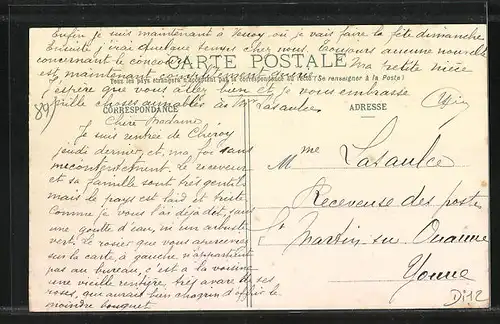 Enfin je suis maintenant à Percy où je vais faire la fête dimanche
Ensuite j'irai quelque temps chez nous. Toujours aucune nouvelle
concernant le concours. Ma petite nièce
CARTE POSTALE
est maintenant
Tous les pays étrangers n'acceptent pas la correspondance au recto (Se renseigner à la Poste)
J'espère que vous allez bien et je vous embrasse
mille choses aimables à Mr Lasaulce
CORRESPONDANCE
89
Chère Madame
Je suis rentrée de Chéroy
jeudi dernier et, ma foi sans
mécontentement. Le receveur
et sa famille sont très gentils
mais le pays est laid et triste
Comme je vous l'ai déjà dit, sans
une goutte d'eau, ni un arbuste
vert. Le rosier que vous apercevez
sur la carte, à gauche n'appartient
pas au bureau, c'est à la voisine
une vieille rentière, très avare de ses
roses, qui aurait bien chagrin d'offrir le
moindre bouquet.
ADRESSE
Mme Lasaulce
Receveuse des postes
St Martin sur Ouanne
Yonne
Di12